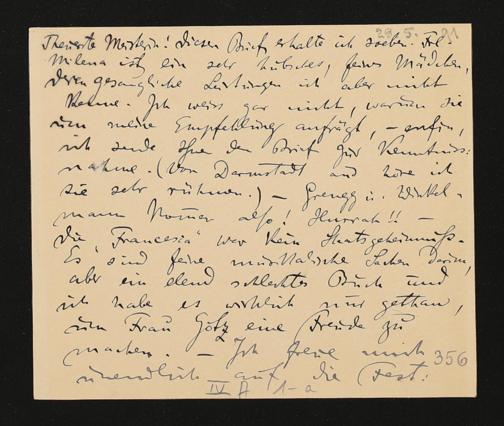 29.5. 91
Theuerste Meisterin! Diesen Brief erhalte ich soeben. Frl.
Milena ist ein sehr hübsches, feines Mädchen,
deren gesangliche Leistungen ich aber nicht
kenne. Ich weiss gar nicht, warum sie
um meine Empfehlung anfrägt, – enfin,
ich sende Ihnen den Brief zur Kenntniss:
nahme. (Von Darmstadt aus höre ich
sie sehr rühmen.) – Grengg u. Winkel-
mann kommen also! Hurrah!! –
Die „Francesca" war kein Staatsgeheimniss.
Es sind feine musikalische Sachen darin,
aber ein elend schlechtes Buch und
ich habe es wirklich nur gethan,
um Frau Götz eine Freude zu
machen. – Ich freue mich
unendlich auf die Fest:
356
IV A 1-a